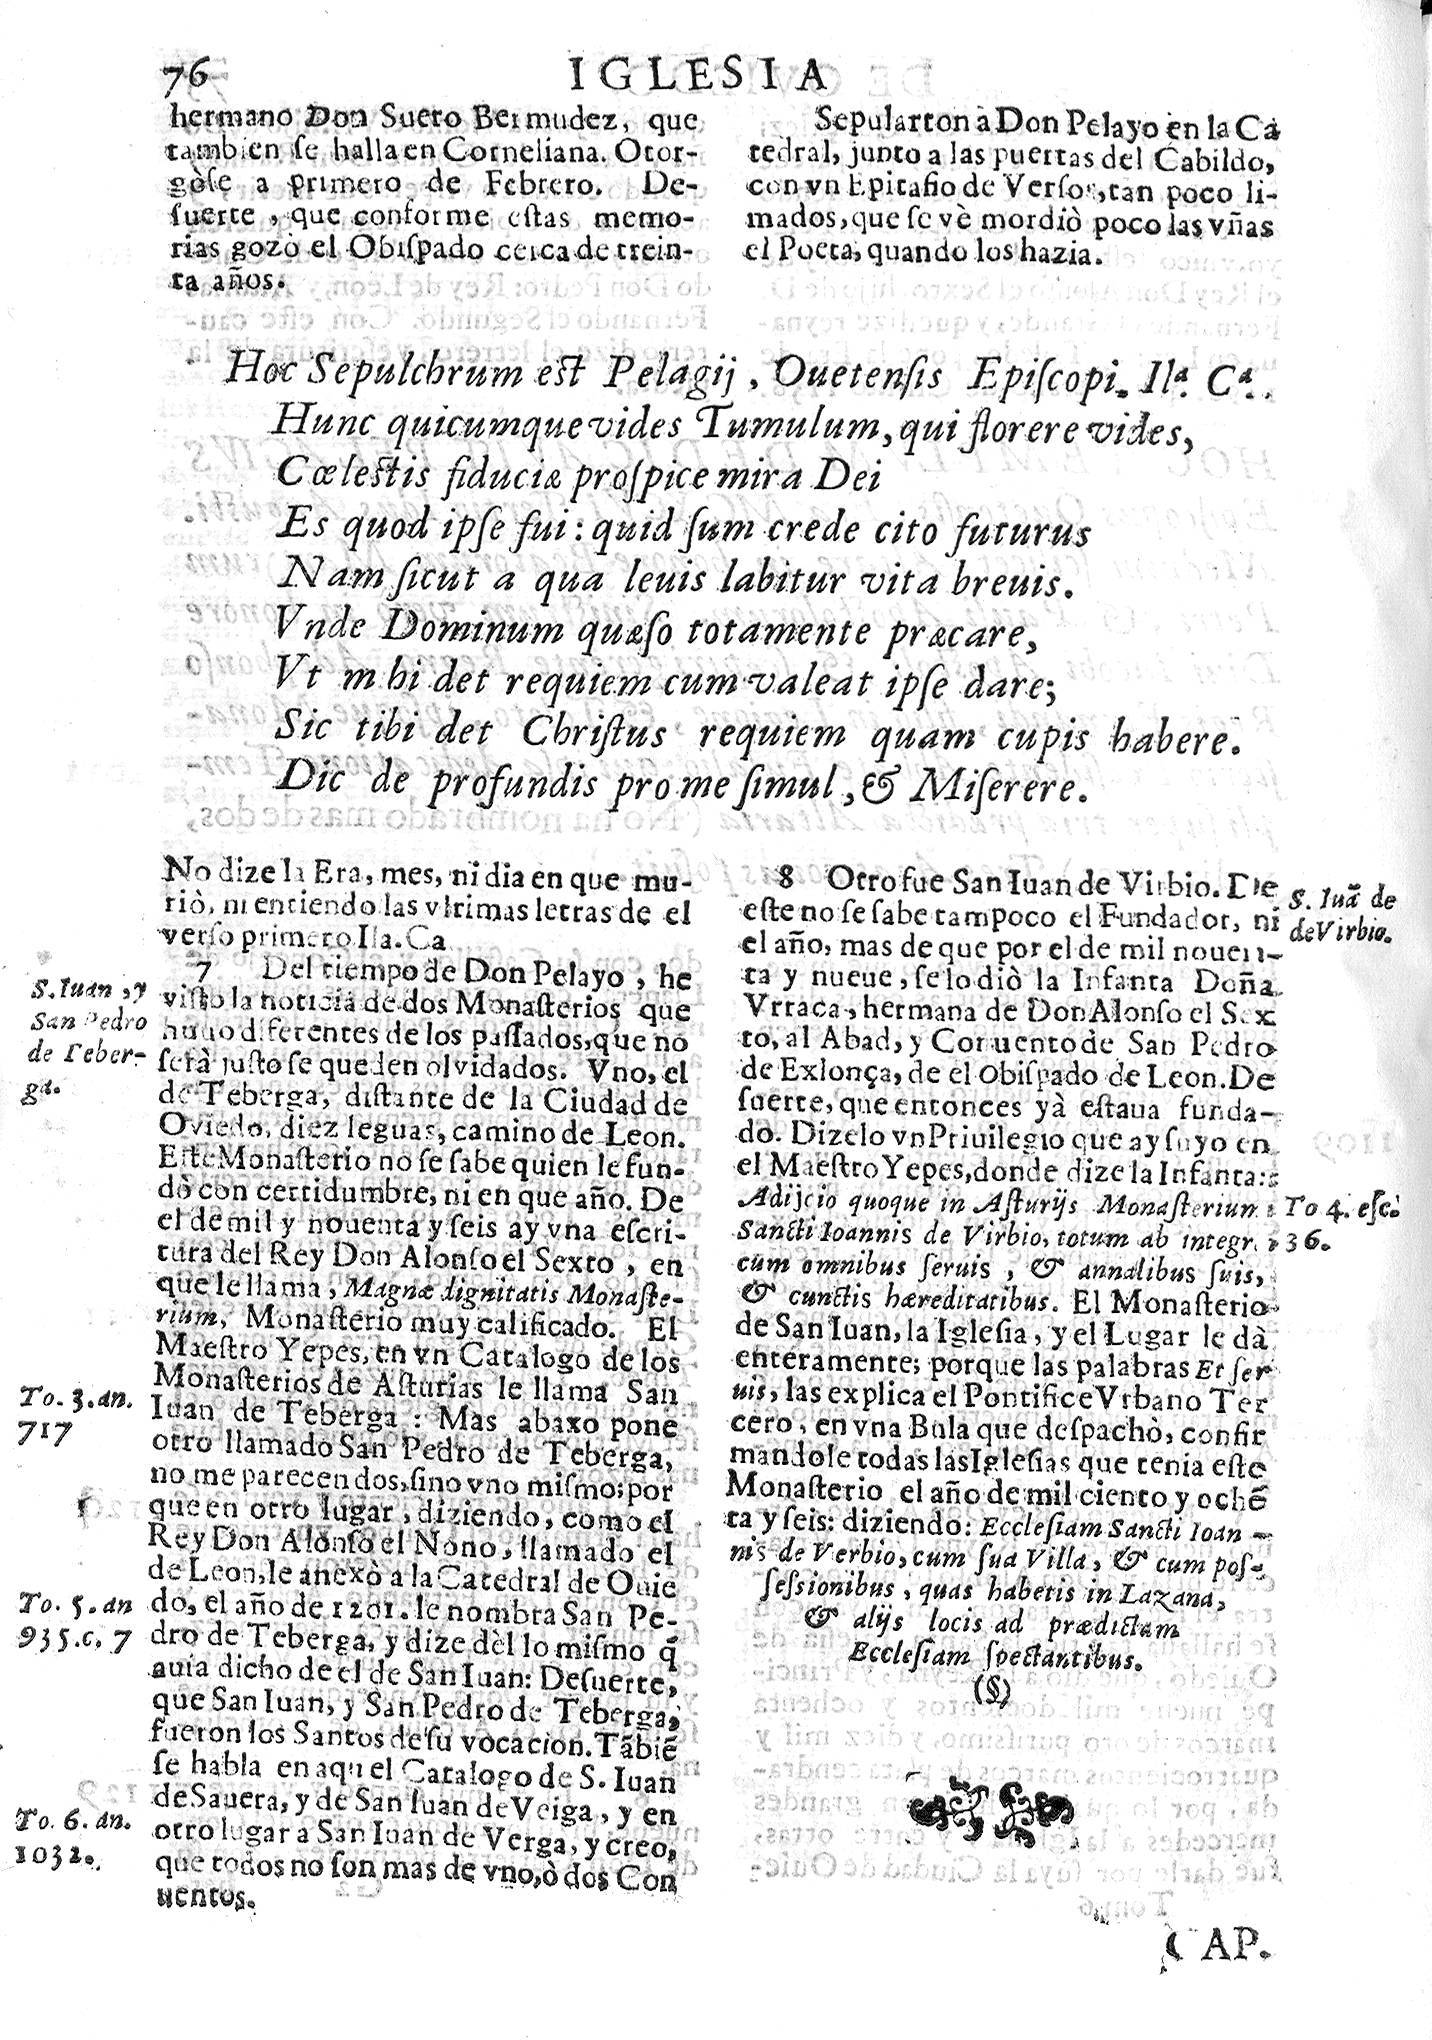 76
IGLESIA
hermano Don Suero Bermudez, que
tambien se halla en Corneliana. Otor-
gòse a primero de Febrero. De-
suerte, que conforme estas memo-
rias gozò el Obispado cerca de trein-
ta años.
Sepularton à Don Pelayo en la Ca
tedral, junto a las puertas del Cabildo,
con vn Epitafio de Versos, tan poco li-
mados, que se vè mordiò poco las vñas
el Poeta, quando los hazia.
Hoc Sepulchrum est Pelagij, Ouetensis Episcopi. Ilª. Cª..
Hunc quicumque vides Tumulum, qui florere vides,
Cœlestis fiduciæ prospice mira Dei
Es quod ipse fui: quid sum crede cito futurus
Nam sicut a qua leuis labitur vita breuis.
Vnde Dominum quæso totamente præcare,
Vt m hi det requiem cum valeat ipse dare;
Sic tibi det Christus requiem quam cupis habere.
Dic de profundis pro me simul, & Miserere.
No dize la Era, mes, ni dia en que mu-
riò, ni entiendo las vltimas letras de el
verso primero Ila. Ca
7 Del tiempo de Don Pelayo, he
visto la noticia de dos Monasterios que
huuo diferentes de los passados, que no
serà justo se queden olvidados. Vno, el
de Teberga, distante de la Ciudad de
Oviedo, diez leguas, camino de Leon.
Este Monasterio no se sabe quien le fun-
dò con certidumbre, ni en que año. De
el de mil y nouenta y seis ay vna escri-
tura del Rey Don Alonso el Sexto, en
que le llama, Magnæ dignitatis Monaste-
rium, Monasterio muy calificado. El
Maestro Yepes, en vn Catalogo de los
Monasterios de Asturias le llama San
Iuan de Teberga: Mas abaxo pone
otro llamado San Pedro de Teberga,
no me parecen dos, sino vno mismo; por
que en otro lugar, diziendo, como el
Rey Don Alonso el Nono, llamado el
de Leon, le anexò a la Catedral de Ouie
do, el año de 1201. le nombra San Pe-
dro de Teberga, y dize dèl lo mismo q̃
auia dicho de el de San Iuan: Desuerte,
que San Iuan, y San Pedro de Teberga,
fueron los Santos de su vocacion. Tābiē
se habla en aquel Catalogo de S. Iuan
de Sauera, y de San Iuan de Veiga, y en
otro lugar a San Iuan de Verga, y creo,
que todos no son mas de vno, ò dos Con
uentos.
S. Iuan, y
San Pedro
de Teber-
ga.
To. 3. an.
717
To. 5. an
935. c. 7
To. 6. an.
1032.
8 Otro fue San Iuan de Virbio. De
este no se sabe tampoco el Fundador, ni
el año, mas de que por el de mil nouen-
ta y nueue, se lo diò la Infanta Doña
Vrraca, hermana de Don Alonso el Sex
to, al Abad, y Conuento de San Pedro
de Exlonça, de el Obispado de Leon. De
suerte, que entonces yà estaua funda-
do. Dizelo vn Priuilegio que ay suyo en
el Maestro Yepes, donde dize la Infanta:
Adijcio quoque in Asturijs Monasterium
Sancti Ioannis de Virbio, totum ab integr
cum omnibus seruis, & annalibus suis,
& cunctis hæreditatibus. El Monasterio
de San Iuan, la Iglesia, y el Lugar le dà
enteramente; porque las palabras Et ser
uis, las explica el Pontifice Vrbano Ter
cero, en vna Bula que despachò, confir
mandole todas las Iglesias que tenia este
Monasterio el año de mil ciento y ochē
ta y seis: diziendo: Ecclesiam Sancti Ioan-
nis de Verbio, cum sua Villa, & cum pos-
sessionibus, quas habetis in Lazana,
& alijs locis ad prædictam
Ecclesiam spectantibus.
(§)
S. Iuā de
de Virbio.
To 4. escò
36.
CAP.